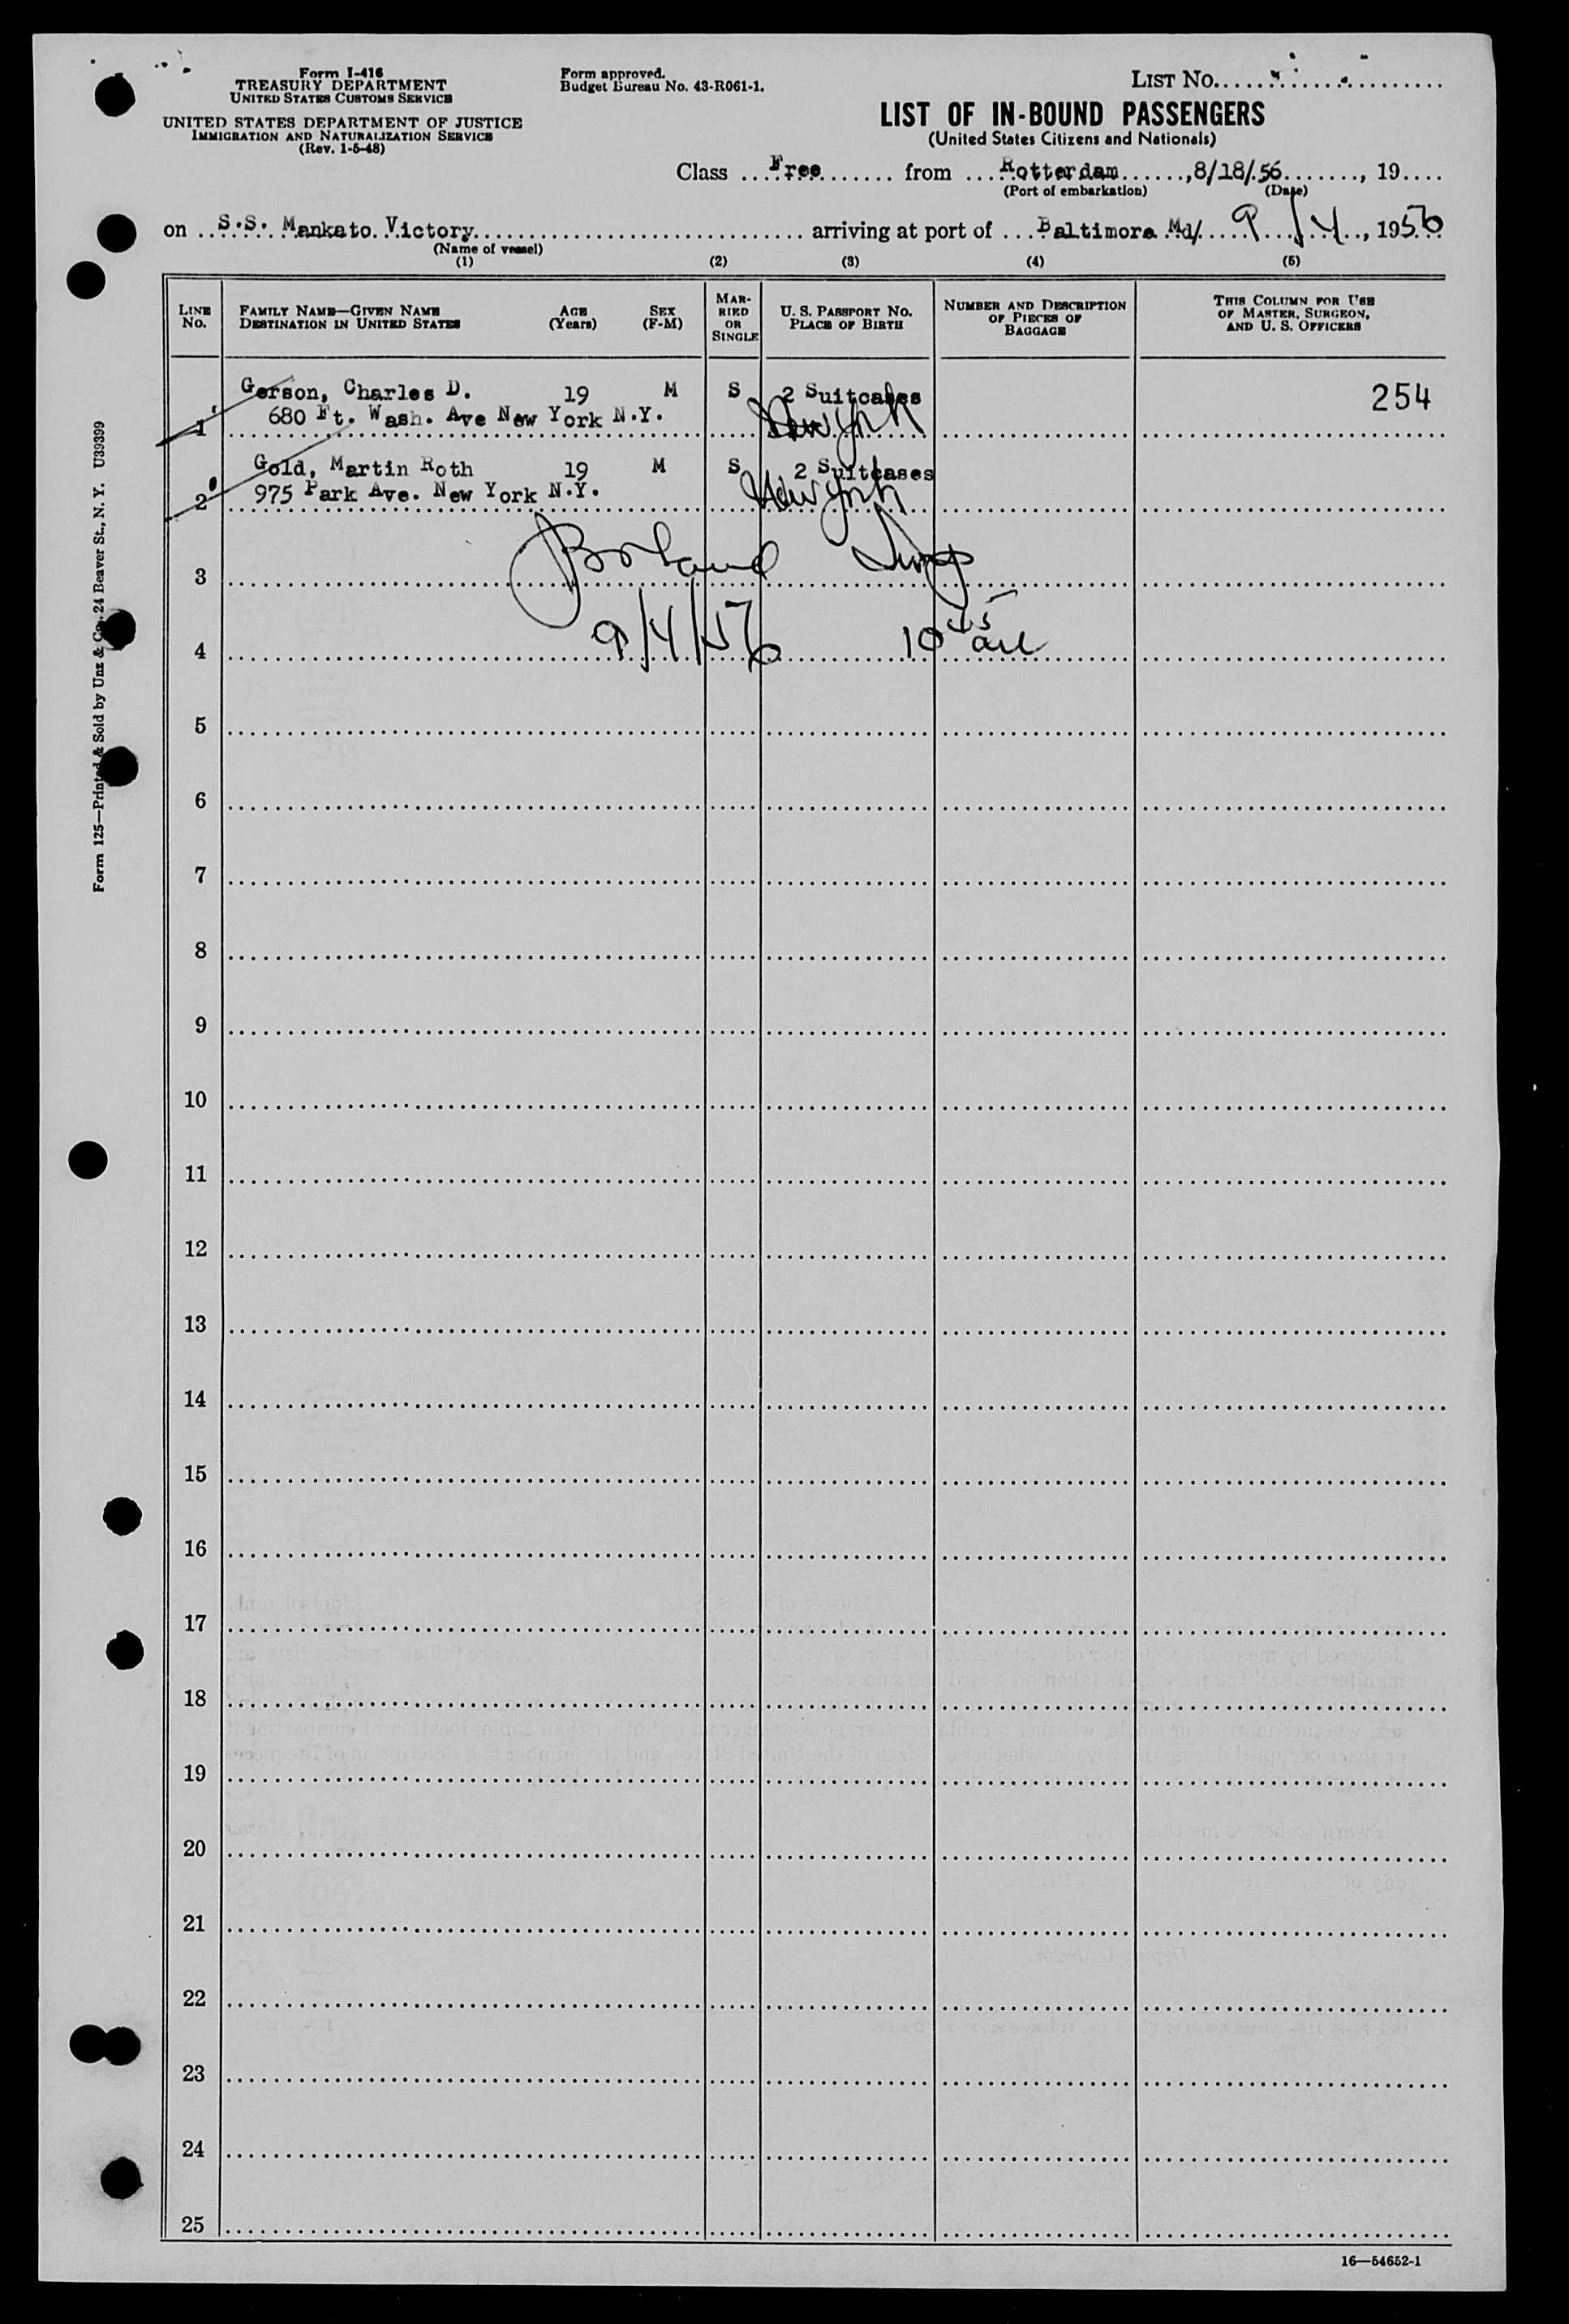 Form I-416
TREASURY DEPARTMENT
UNITED STATES CUSTOMS SERVICE
UNITED STATES DEPARTMENT OF JUSTICE
IMMIGRATION AND NATURALIZATION SERVICE
(Rev. 1-5-48)
Form approved.
Budget Bureau No. 43-R061-1.
LIST NO.
LIST OF IN-BOUND PASSENGERS
(United States Citizens and Nationals)
Class Free from Rotterdam, 8/18/56, 19
(Port of embarkation) (Date)
on S.S. Mankato Victory arriving at port of Baltimore Md/ 9/4, 1956
(Name of vessel)
(1) (2) (3) (4) (5)
LINE No.
FAMILY NAME—GIVEN NAME
DESTINATION IN UNITED STATES
AGE (Years)
SEX (F-M)
MARRIED OR SINGLE
U. S. PASSPORT NO.
PLACE OF BIRTH
NUMBER AND DESCRIPTION OF PIECES OF BAGGAGE
THIS COLUMN FOR USE OF MASTER, SURGEON, AND U. S. OFFICERS
Gerson, Charles D. 19 M S 2 Suitcases 254
1 680 Ft. Wash. Ave New York N.Y. New York
Gold, Martin Roth 19 M S 2 Suitcases
2 975 Park Ave. New York N.Y. New York
3
4 9/4/56 10 45 am
5
6
7
8
9
10
11
12
13
14
15
16
17
18
19
20
21
22
23
24
25
16—54652-1
Form 125—Printed & Sold by Unz & Co., 24 Beaver St., N. Y. U39399